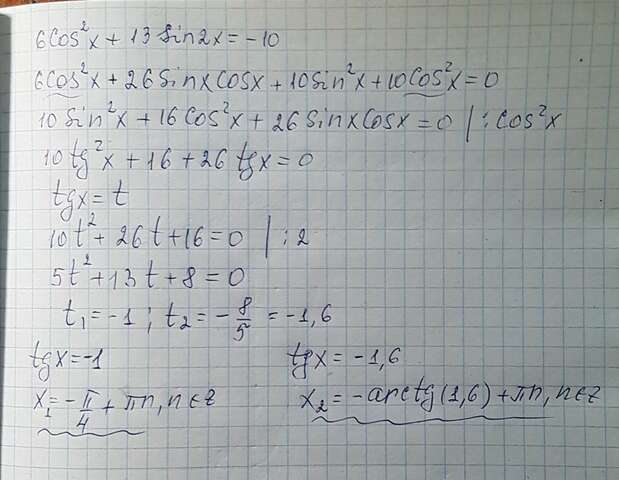 6cos²x + 13 sin2x = -10
6cos²x + 26 sinx cosx + 10sin²x + 10cos²x = 0
10 sin²x + 16 cos²x + 26 sinx cosx = 0 | : cos²x
10 tg²x + 16 + 26 tgx = 0
tgx = t
10t² + 26t + 16 = 0 | : 2
5t² + 13t + 8 = 0
t₁ = -1 ; t₂ = -8/5 = -1,6
tgx = -1 tgx = -1,6
x₁ = -π/4 + πn, n ∈ z x₂ = -arctg(1,6) + πn, n ∈ z